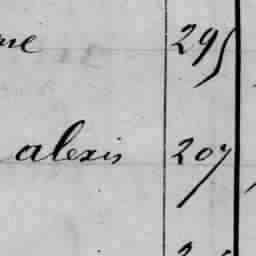 295
alexis 207